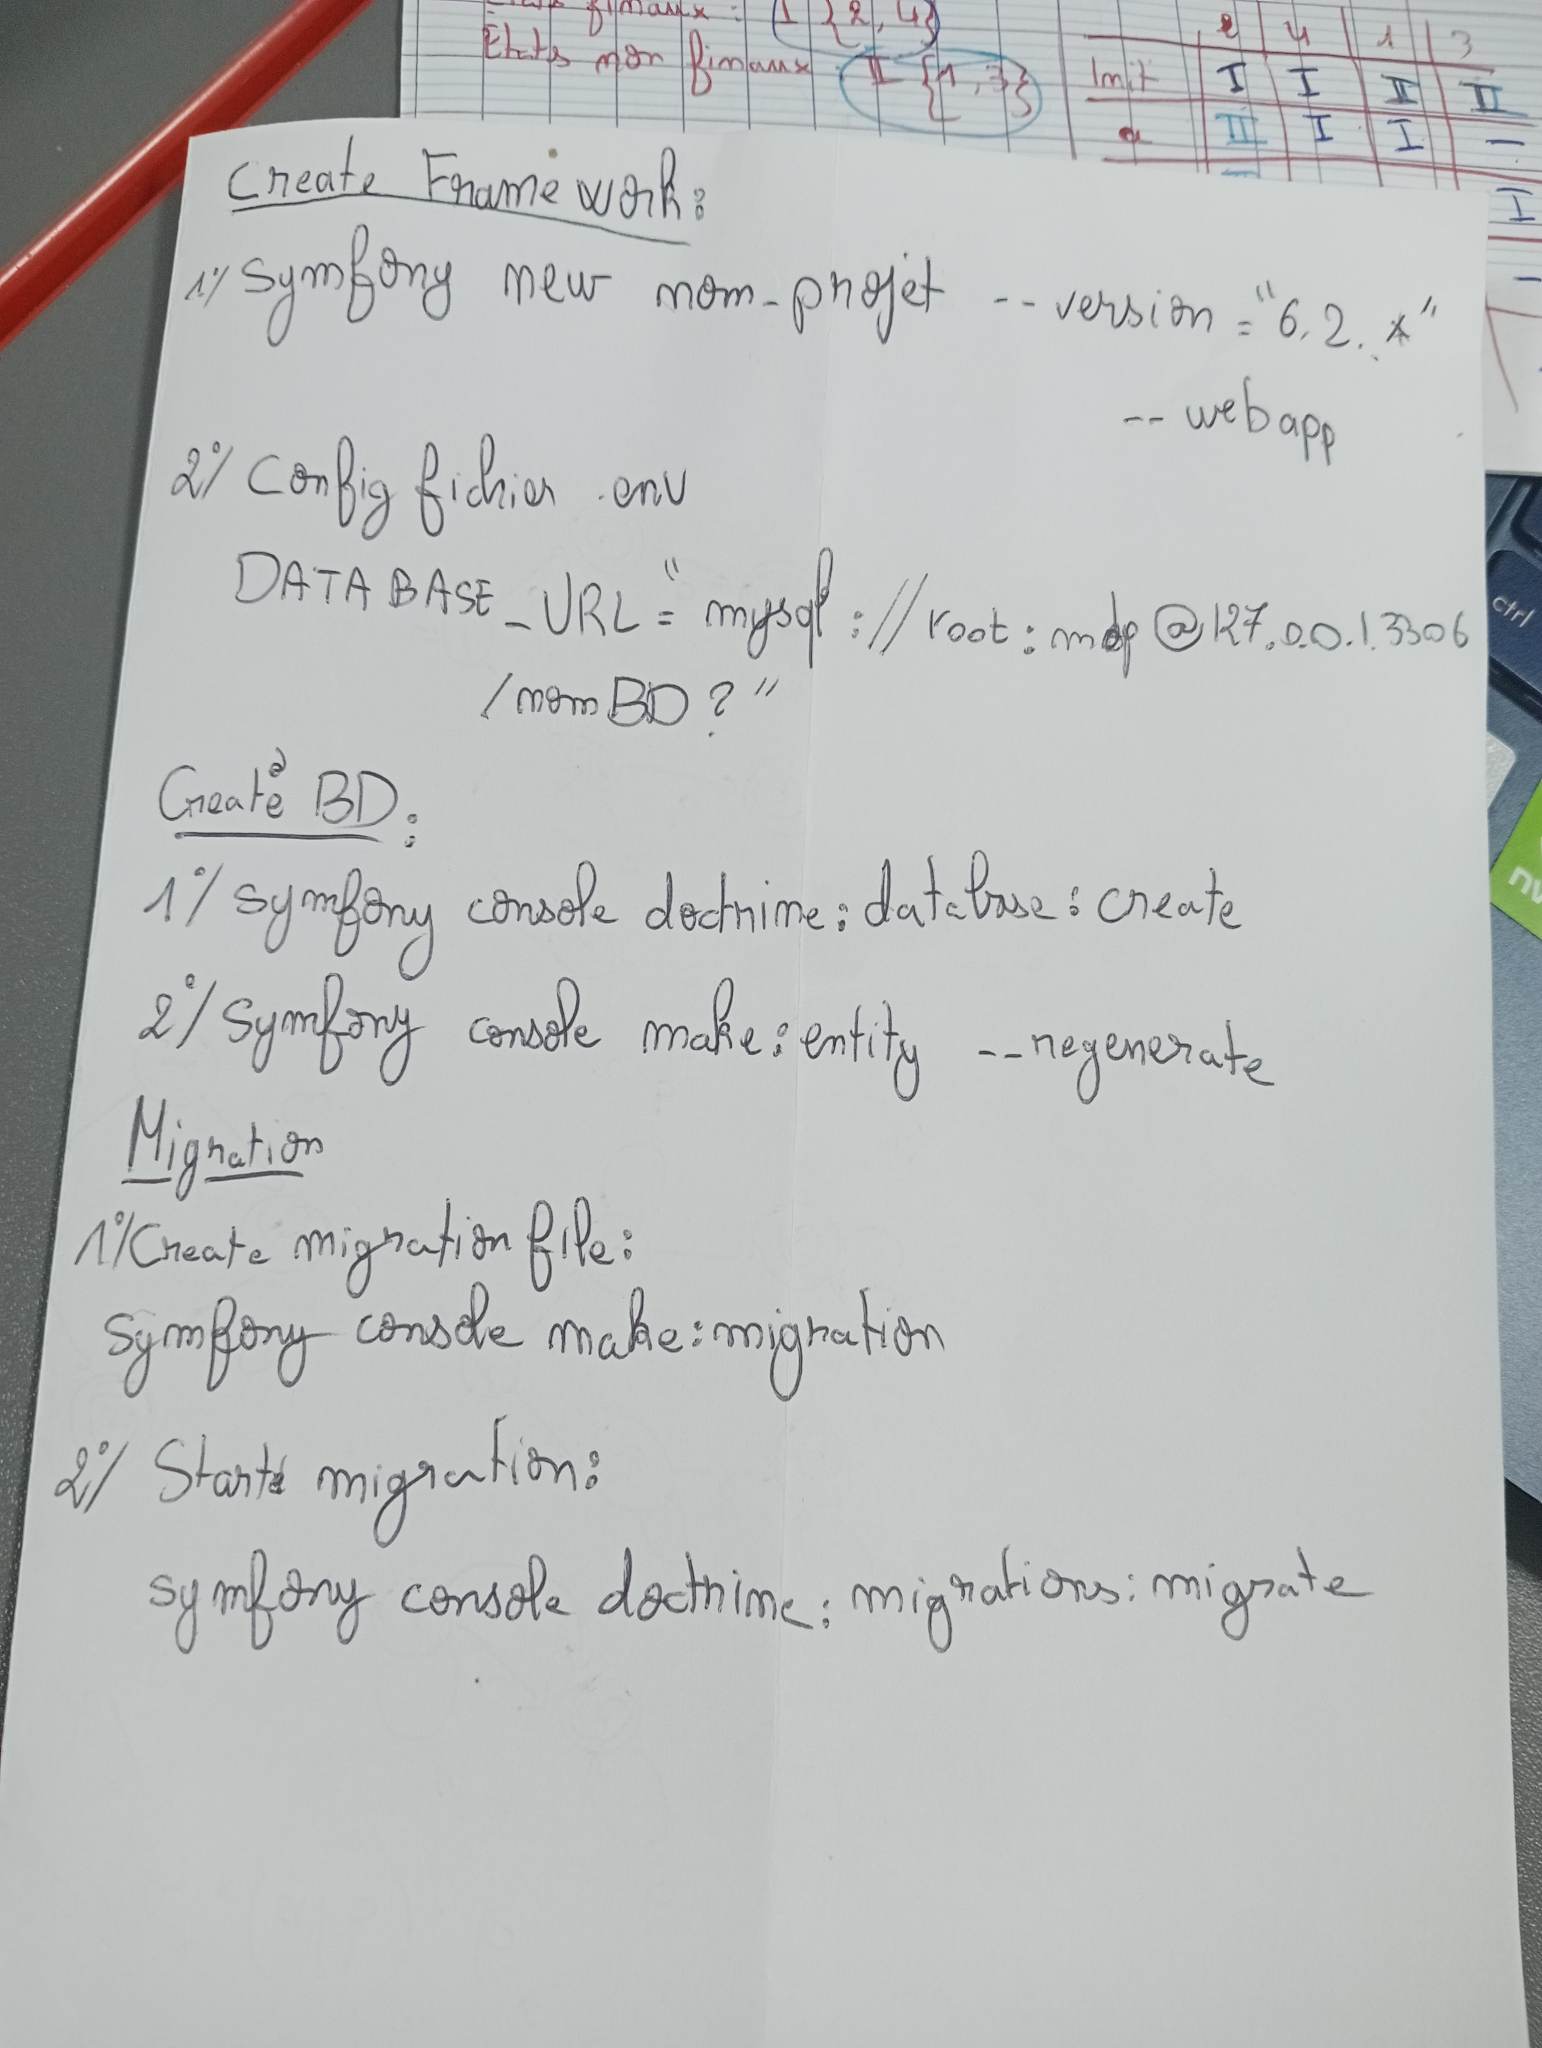 États non finaux II {1, 3}
2 4 1 3
Init I I II II
a II I I -
I
-
Create Frame work:
1°/ Symfony new nom-projet --version="6.2.*"
--webapp
2°/ Config fichier .env
DATABASE_URL="mysql://root:mdp@127.0.0.1.3306
/nomBD?"
Create BD:
1°/ Symfony console doctrine:database:create
2°/ Symfony console make:entity --regenerate
Migration
1°/ Create migration file:
Symfony console make:migration
2°/ Start migration:
symfony console doctrine:migrations:migrate
ctrl